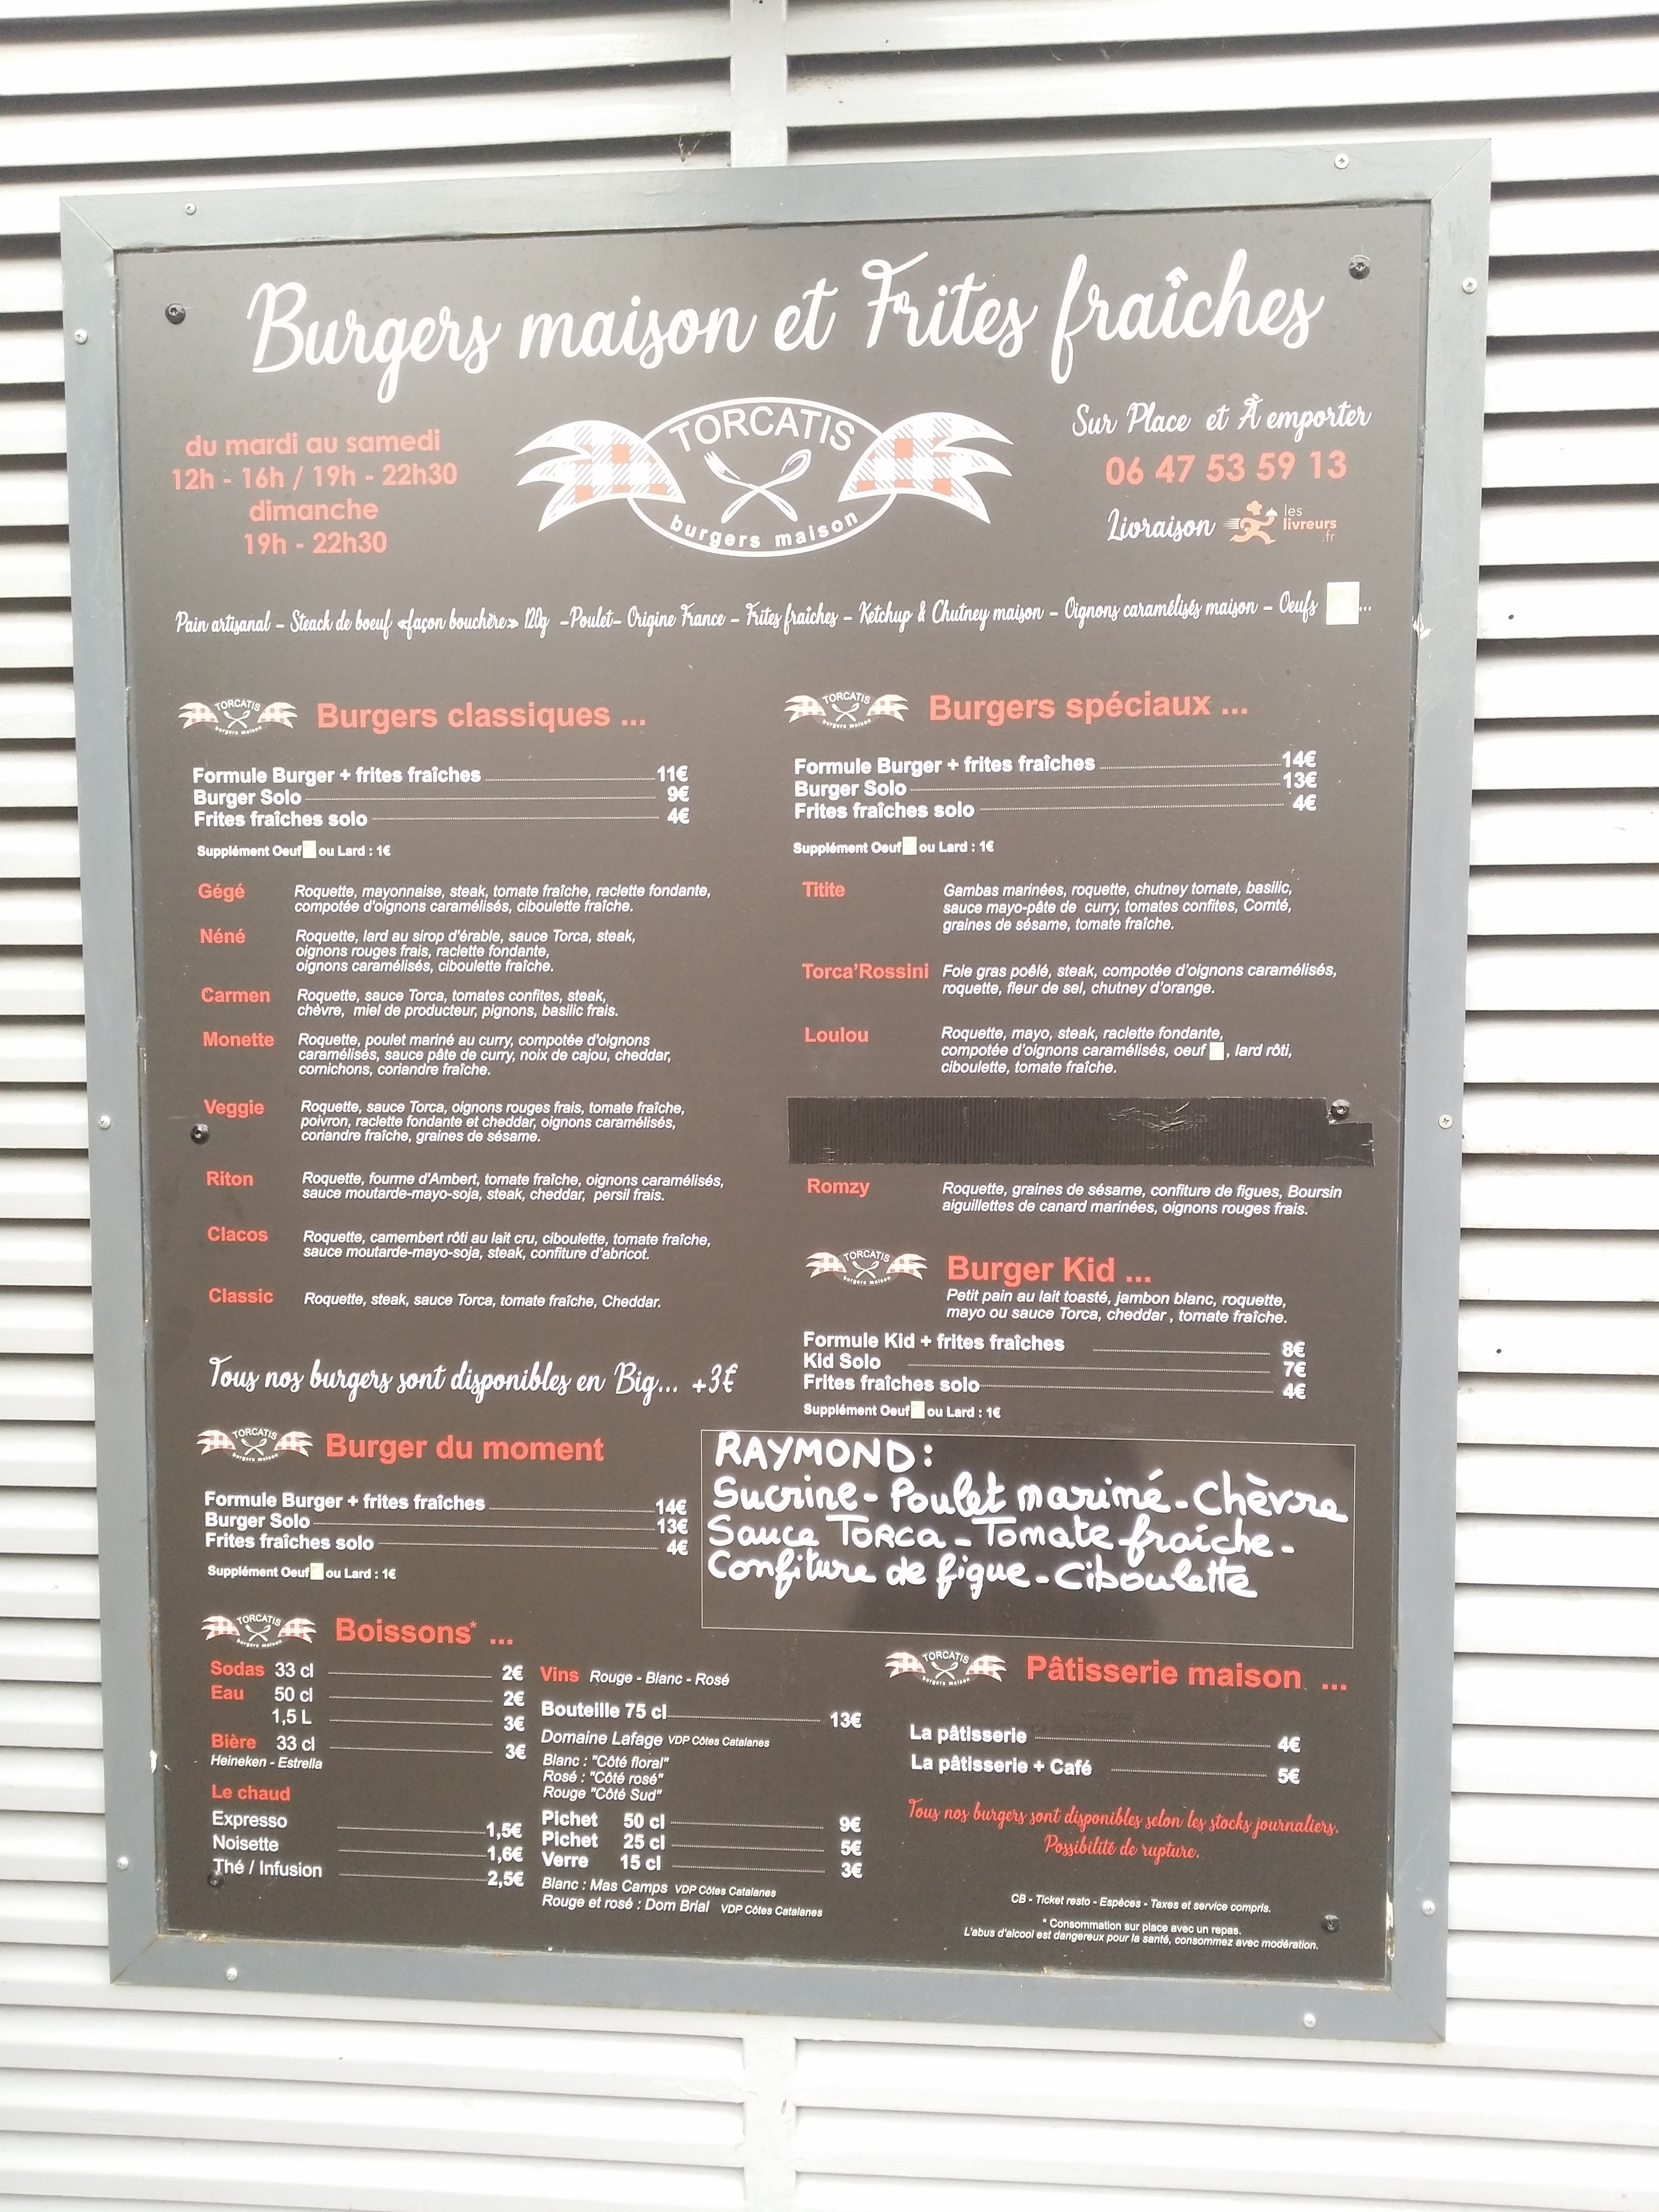 Burgers maison et Frites fraîches
du mardi au samedi
12h - 16h / 19h - 22h30
dimanche
19h - 22h30
TORCATIS
burgers maison
Sur Place et À emporter
06 47 53 59 13
Livraison
les
livreurs
.fr
Pain artisanal - Steack de boeuf «façon bouchère» 120g -Poulet- Origine France - Frites fraîches - Ketchup & Chutney maison - Oignons caramélisés maison - Oeufs ...
TORCATIS
burgers maison
Burgers classiques ...
Formule Burger + frites fraîches 11€
Burger Solo 9€
Frites fraîches solo 4€
Supplément Oeuf ou Lard : 1€
Gégé Roquette, mayonnaise, steak, tomate fraîche, raclette fondante,
compotée d'oignons caramélisés, ciboulette fraîche.
Néné Roquette, lard au sirop d'érable, sauce Torca, steak,
oignons rouges frais, raclette fondante,
oignons caramélisés, ciboulette fraîche.
Carmen Roquette, sauce Torca, tomates confites, steak,
chèvre, miel de producteur, pignons, basilic frais.
Monette Roquette, poulet mariné au curry, compotée d'oignons
caramélisés, sauce pâte de curry, noix de cajou, cheddar,
cornichons, coriandre fraîche.
Veggie Roquette, sauce Torca, oignons rouges frais, tomate fraîche,
poivron, raclette fondante et cheddar, oignons caramélisés,
coriandre fraîche, graines de sésame.
Riton Roquette, fourme d'Ambert, tomate fraîche, oignons caramélisés,
sauce moutarde-mayo-soja, steak, cheddar, persil frais.
Clacos Roquette, camembert rôti au lait cru, ciboulette, tomate fraîche,
sauce moutarde-mayo-soja, steak, confiture d'abricot.
Classic Roquette, steak, sauce Torca, tomate fraîche, Cheddar.
Tous nos burgers sont disponibles en Big... +3€
TORCATIS
burgers maison
Burgers spéciaux ...
Formule Burger + frites fraîches 14€
Burger Solo 13€
Frites fraîches solo 4€
Supplément Oeuf ou Lard : 1€
Titite Gambas marinées, roquette, chutney tomate, basilic,
sauce mayo-pâte de curry, tomates confites, Comté,
graines de sésame, tomate fraîche.
Torca'Rossini Foie gras poêlé, steak, compotée d'oignons caramélisés,
roquette, fleur de sel, chutney d'orange.
Loulou Roquette, mayo, steak, raclette fondante,
compotée d'oignons caramélisés, oeuf , lard rôti,
ciboulette, tomate fraîche.
Romzy Roquette, graines de sésame, confiture de figues, Boursin
aiguillettes de canard marinées, oignons rouges frais.
TORCATIS
burgers maison
Burger Kid ...
Petit pain au lait toasté, jambon blanc, roquette,
mayo ou sauce Torca, cheddar , tomate fraîche.
Formule Kid + frites fraîches 8€
Kid Solo 7€
Frites fraîches solo 4€
Supplément Oeuf ou Lard : 1€
TORCATIS
burgers maison
Burger du moment
Formule Burger + frites fraîches 14€
Burger Solo 13€
Frites fraîches solo 4€
Supplément Oeuf ou Lard : 1€
RAYMOND :
Sucrine - Poulet mariné - Chèvre
Sauce TORCA - Tomate fraîche -
Confiture de figue - Ciboulette
TORCATIS
burgers maison
Boissons* ...
Sodas 33 cl 2€
Eau 50 cl 2€
1,5 L 3€
Bière 33 cl 3€
Heineken - Estrella
Le chaud
Expresso 1,5€
Noisette 1,6€
Thé / Infusion 2,5€
Vins Rouge - Blanc - Rosé
Bouteille 75 cl 13€
Domaine Lafage VDP Côtes Catalanes
Blanc : "Côté floral"
Rosé : "Côté rosé"
Rouge "Côté Sud"
Pichet 50 cl 9€
Pichet 25 cl 5€
Verre 15 cl 3€
Blanc : Mas Camps VDP Côtes Catalanes
Rouge et rosé : Dom Brial VDP Côtes Catalanes
TORCATIS
burgers maison
Pâtisserie maison ...
La pâtisserie 4€
La pâtisserie + Café 5€
Tous nos burgers sont disponibles selon les stocks journaliers.
Possibilité de rupture.
CB - Ticket resto - Espèces - Taxes et service compris.
* Consommation sur place avec un repas.
L'abus d'alcool est dangereux pour la santé, consommez avec modération.